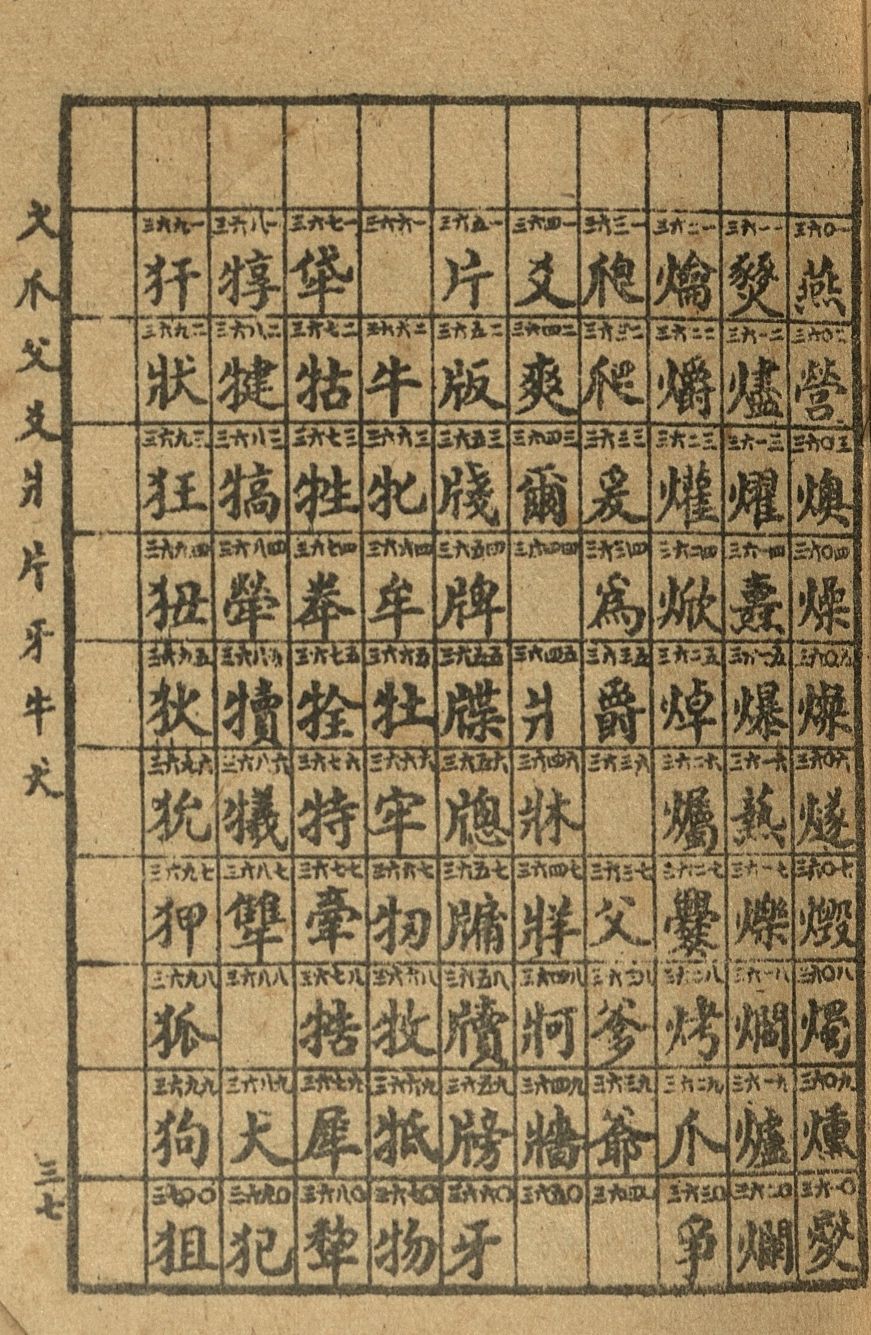 三六〇一 燕 三六〇二 營 三六〇三 燠 三六〇四 燥 三六〇五 燦 三六〇六 燧 三六〇七 燬 三六〇八 燭 三六〇九 燻 三六一〇 燮
三六一一 燹 三六一二 燼 三六一三 燿 三六一四 燾 三六一五 爆 三六一六 爇 三六一七 爍 三六一八 三六一九 爐 三六二〇 爛
三六二一 爚 三六二二 爝 三六二三 爟 三六二四 焮 三六二五 焯 三六二六 爥 三六二七 爨 三六二八 烤 三六二九 爪 三六三〇 爭
三六三一 爮 三六三二 爬 三六三三 爰 三六三四 爲 三六三五 爵 三六三六 三六三七 父 三六三八 爹 三六三九 爺 三六四〇
三六四一 爻 三六四二 爽 三六四三 爾 三六四四 三六四五 爿 三六四六 牀 三六四七 牂 三六四八 牁 三六四九 牆 三六五〇
三六五一 片 三六五二 版 三六五三 牋 三六五四 牌 三六五五 牒 三六五六 牕 三六五七 牗 三六五八 牘 三六五九 牓 三六六〇 牙
三六六一 三六六二 牛 三六六三 牝 三六六四 牟 三六六五 牡 三六六六 牢 三六六七 牣 三六六八 牧 三六六九 牴 三六七〇 物
三六七一 牮 三六七二 牯 三六七三 牲 三六七四 牶 三六七五 牷 三六七六 特 三六七七 牽 三六七八 牿 三六七九 犀 三六八〇 犂
三六八一 犉 三六八二 犍 三六八三 犒 三六八四 犖 三六八五 犢 三六八六 犧 三六八七 犨 三六八八 三六八九 犬 三六九〇 犯
三六九一 犴 三六九二 狀 三六九三 狂 三六九四 狃 三六九五 狄 三六九六 狁 三六九七 狎 三六九八 狐 三六九九 狗 三七〇〇 狙
火爪父爻爿片牙牛犬
三七